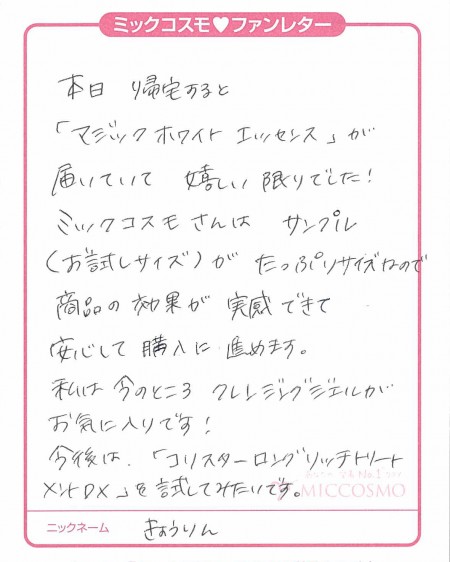 ミックコスモ♥ファンレター
本日 帰宅すると
「マジックホワイト エッセンス」が
届いていて 嬉しい限りでした!
ミックコスモさんは サンプル
(お試しサイズ)が たっぷりサイズなので
商品の効果が 実感できて
安心して購入に進めます。
私は今のところ クレンジングジェルが
お気に入りです!
今後は、「コリスターロングリッチトリート
メントDX」を試してみたいです。
MICCOSMO
ニックネーム きょうりん